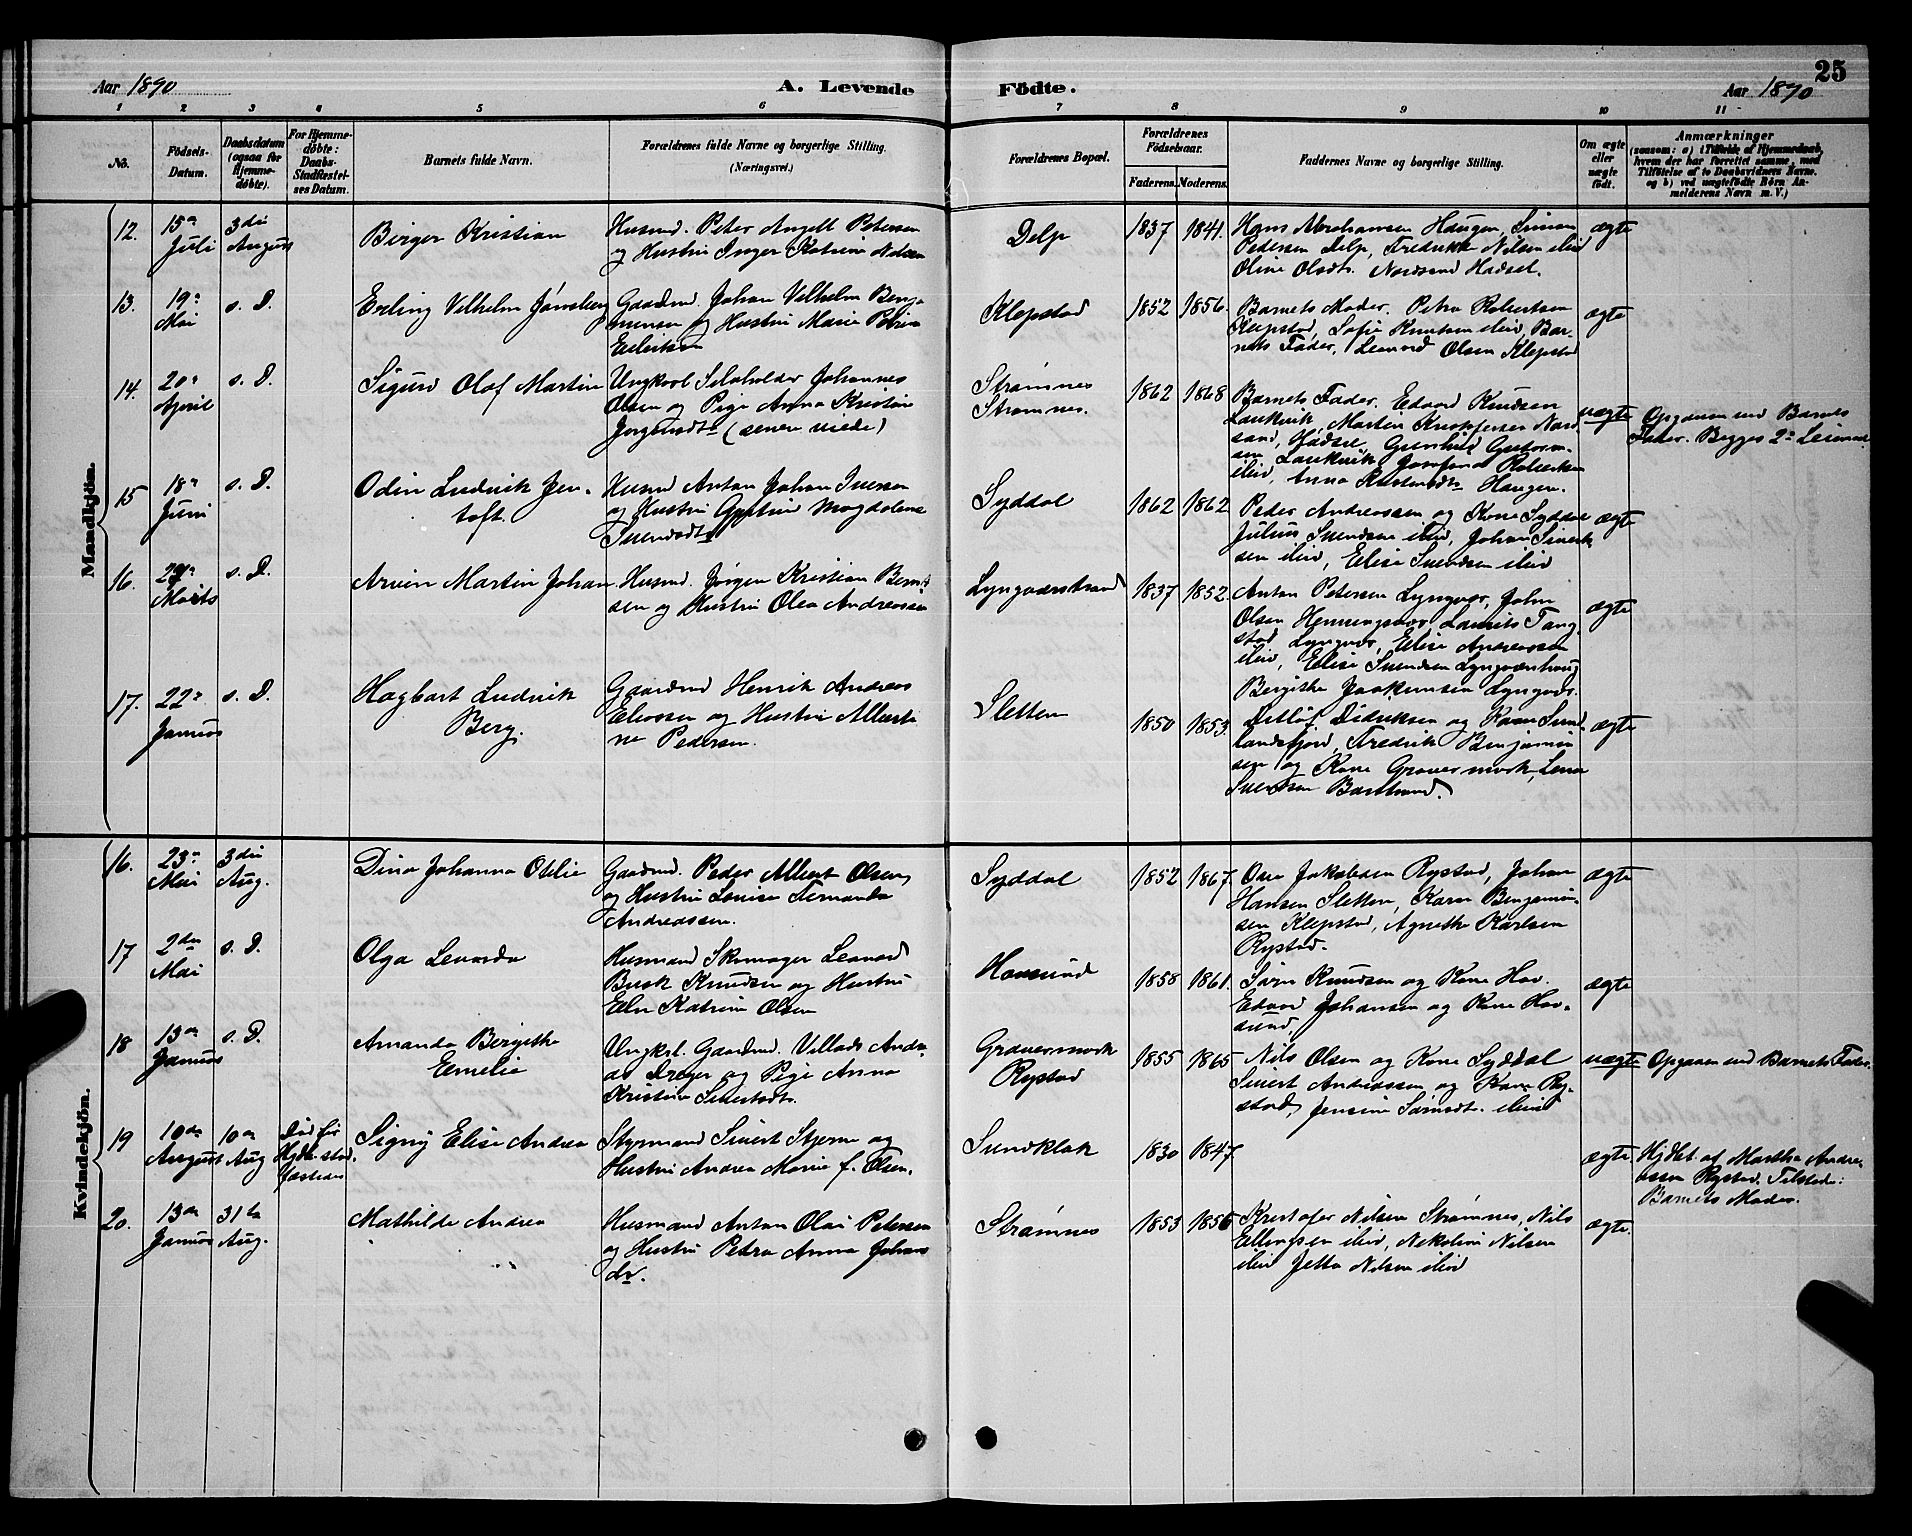 25
Aar 1890 A. Levende Födte. Aar 1890
1 2 3 4 5 6 7 8 9 10 11
No. Födsels-Datum. Daabsdatum (ogsaa for Hjemmedöbte). For Hjemmedöbte: Daabs-Stadfæstelses Datum. Barnets fulde Navn. Forældrenes fulde Navne og borgerlige Stilling. (Næringsvei.) Forældrenes Bopæl. Forældrenes Födselsaar. Faderens. Moderens. Faddernes Navne og borgerlige Stilling. Om ægte eller uægte födt. Anmærkninger (saasom: a) i Tilfælde af Hjemmedaab, hvem der har forrettet samme, med Tilföielse af to Daabsvidners Navne, og b) ved uægtefödte Börn Anmelderens Navn m. V.)
Mandkjön.
12. 15de Juli 3die August Birger Kristian
Husmd. Peter Angell Petersen
og Hustru Inger Katrine Nilsen
Delp 1837 1841.
Hans Abrahamsen Haugen, Simon
Pedersen Delp, Fredrikke Nilsen ibid
Oline Olsdtr. Nordsand Hadsel.
ægte
13. 19de Mai s. D. Erling Vilhelm Jönsberg
Gaardmd. Johan Vilhelm Benja
minsen og Hustru Marie Petrine
Eilertsen
Klepstad 1852 1856
Barnets Moder. Petra Robertsen
Klepstad, Sofie Knutsen ibid, Bar
nets Fader, Leonard Olsen Klepstad
ægte
14. 20de April s. D. Sigurd Olaf Martin
Ungkarl Selvholder Johannes
Olsen og Pige Anna Kristine
Jørgensdtr (senere viede)
Strømnes
Strømnes.
1862 1868
Barnets Fader. Edvard Knudsen
Laukvik, Marten Kristofersen Nord
sand, Hadsel, Gunhild Guttorm
sen Laukvik Josefine Robertsen
ibid, Anna Rasmusdtr Haugen.
uægte
Opgaven ved Barnets
Fader. Begges 2det Leiermaal
15 18de Juni s. D. Odin Ludvik Jen-
toft.
Husmd Anton Johan Iversen
og Hustru Magdalene
Svendsdtr
Syddal 1862 1862
Peder Andreassen og Kone Syddal
Julius Svendsen ibid, Johan Sivert
sen ibid, Elise Svendsen ibid
ægte
16. 27de Marts s. D. Arvin Martin Johan
Husmd. Jørgen Kristian Bernt
sen og Hustru Olea Andreassen
Lyngværstrand 1837 1852.
Anton Petersen Lyngvær, John
Olsen Henningsvær Laurits Tang
stad Lyngvær, Elise Andreassen
ibid, Elise Svendsen Lyngværstrand
Bergithe Joakimsen Lyngvær.
ægte
17. 22de Januar s. D. Hagbart Ludvik
Berg.
Gaardmd Henrik Andreas
Eliassen og Hustru Alberti
ne Pedersen.
Sletten 1850 1853
Ditlef Didriksen og Kone Sund
landsfjord, Fredrik Benjamin
sen og Kone Gravermark, Lena
Svendsen Barstrand.
ægte
Kvindekjön.
16. 23de Mai 3die Aug. Dina Johanna Otelie
Gaardmd. Peder Albert Olsen
og Hustru Lovise Fernanda
Andreassen.
Syddal 1852 1867.
Ole Jakobsen Rystad, Johan
Hansen Sletten, Karen Benjamin
sen Klepstad, Agnethe Karlsen
Rystad.
ægte
17 2den Mai s. D. Olga Lenarda
Husmand Skomager Leonard
Busk Knudsen og Hustru
Eln Katrine Olsen
Hovsund 1858 1861.
Søren Knudsen og Kone Hov.
Edvard Johansen og Kone Hov-
sund,
ægte
18 13de Januar s. D. Amanda Bergitha
Emelie
Ungkrl. Gaardmd. Villads Andre
as Dreyer og Pige Anna
Kristine Sivertsdtr.
Gravermark
Rystad
1855 1865
Nils Olsen og Kone Syddal
Sivert Andreassen og Kone Ry-
stad, Jensine Sørensdtr. ibid
uægte Opgaven ved Barnets Fader.
19 10de August 10de Aug Død før Hjdb. stad. fæstisen
Signy Elise Andrea
Styrmand Sivert Stjerne og
Hustru Andrea Marie f. Olsen.
Sundklak 1830 1847
ægte.
Hjdbt. af Martha Andre
assen Rystad. Tilstede:
Barnets Moder.
20. 13de Januar 31te Aug. Mathilde Andrea
Husmand Anton Olai Petersen
og Hustru Petra Anna Johans
dr.
Strømnes 1853 1856
Kristofer Nilsen Strømnes, Nils
Ellingsen ibid, Nikoline Nilsen
ibid Jetta Nilsen ibid
ægte.